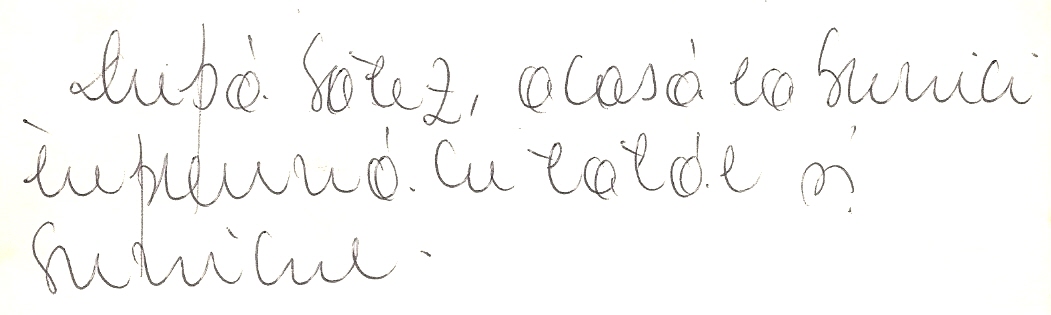 După botez, acasă la bunici
împreună cu tatăl și
bunicul.